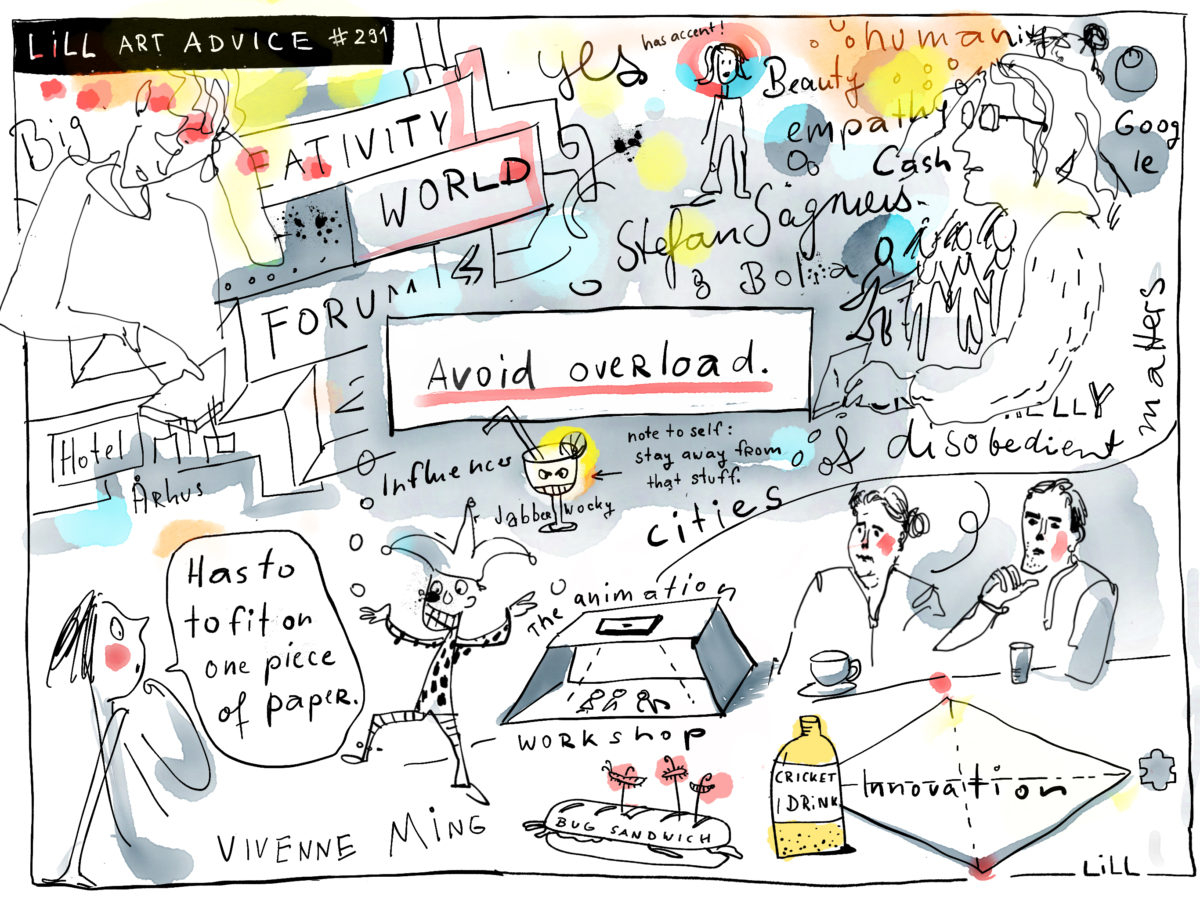 LiLL ART ADVICE #291
Big
EATIVITY
WORLD
FORUM
Hotel
Århus
yes
has accent!
Beauty
humani
empathy
Cash
Goog
le
Stefan Sagmeis
Avoid overload.
matters
of disobedient
Influences
Jabberwocky
note to self:
stay away from
that stuff.
cities
Has to
to fit on
one piece
of paper.
The animation
WORKSHOP
VIVENNE MING
BUG SANDWICH
CRICKET
DRINK
Innovaition
LiLL